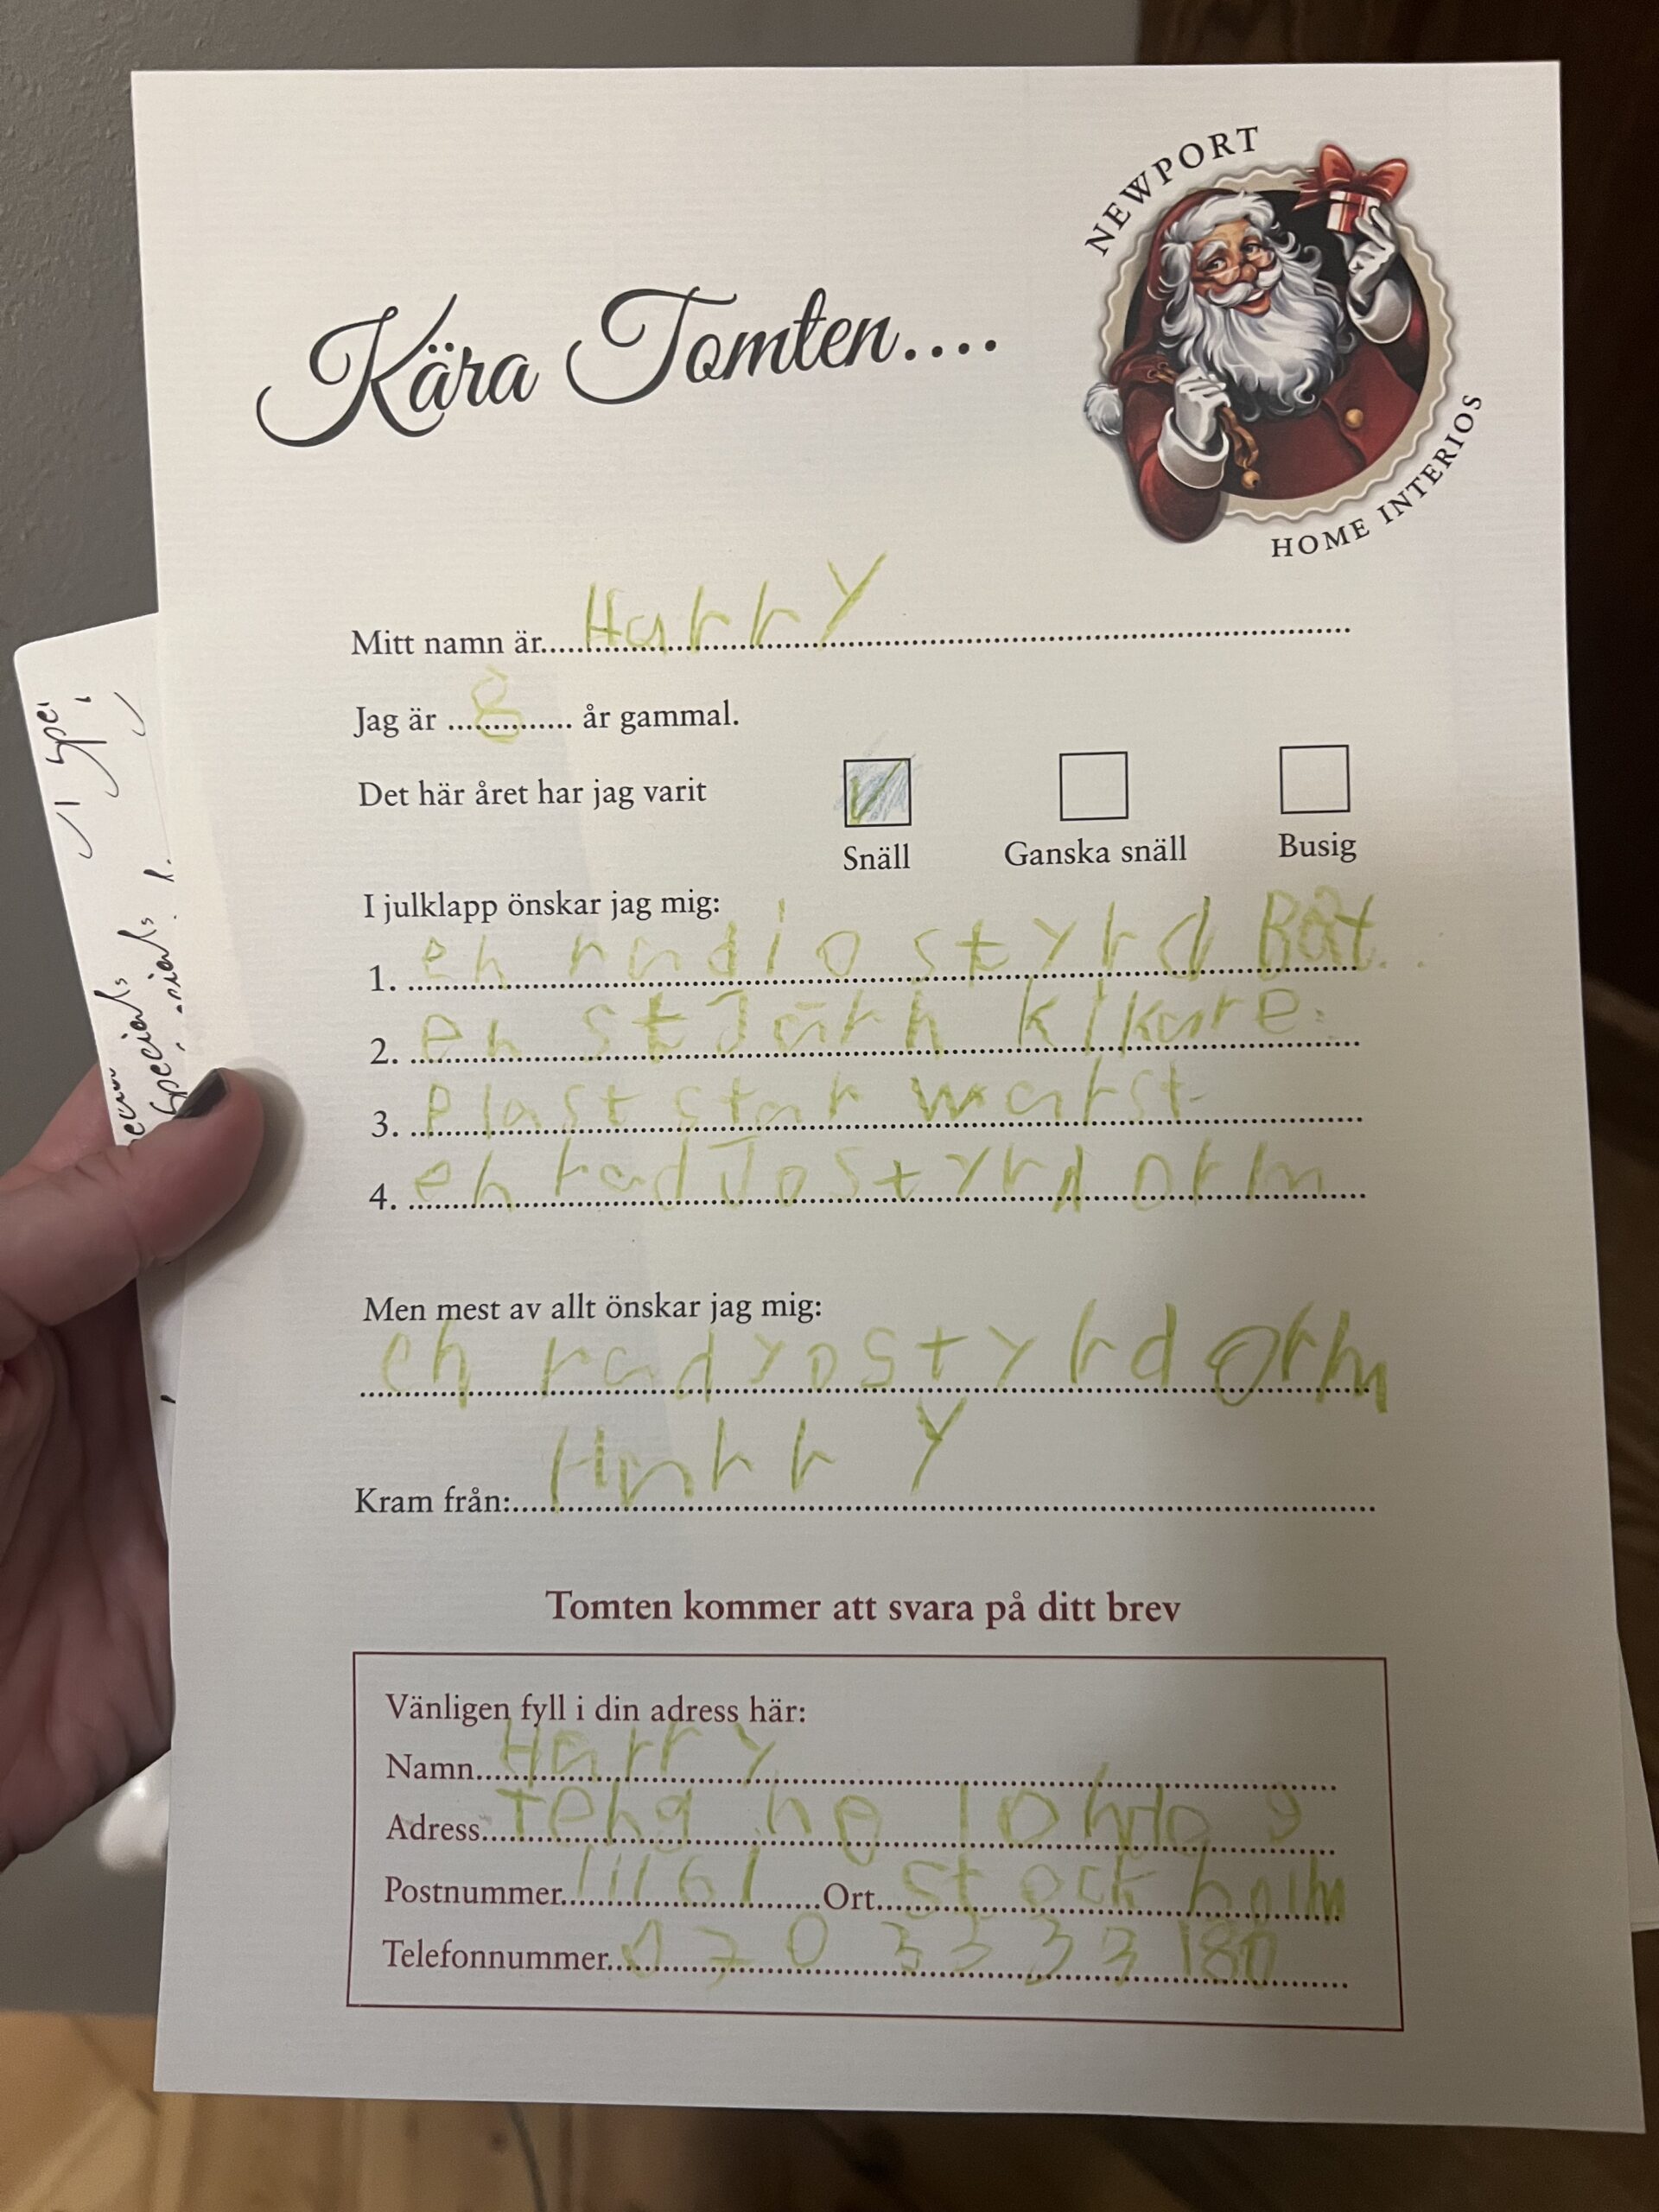 NEWPORT
HOME INTERIOS
Kära Tomten....
Mitt namn är Harry
Jag är 8 år gammal.
Det här året har jag varit
Snäll Ganska snäll Busig
I julklapp önskar jag mig:
1. en radio styrd Båt.
2. en stJärn kikare.
3. Plast star warst
4. en radJostyrd orm
Men mest av allt önskar jag mig:
en radyostyrd orm
Kram från: Harry
Tomten kommer att svara på ditt brev
Vänligen fyll i din adress här:
Namn Harry
Adress
Postnummer 11161 Ort stockholm
Telefonnummer 070 3333 180
Specials